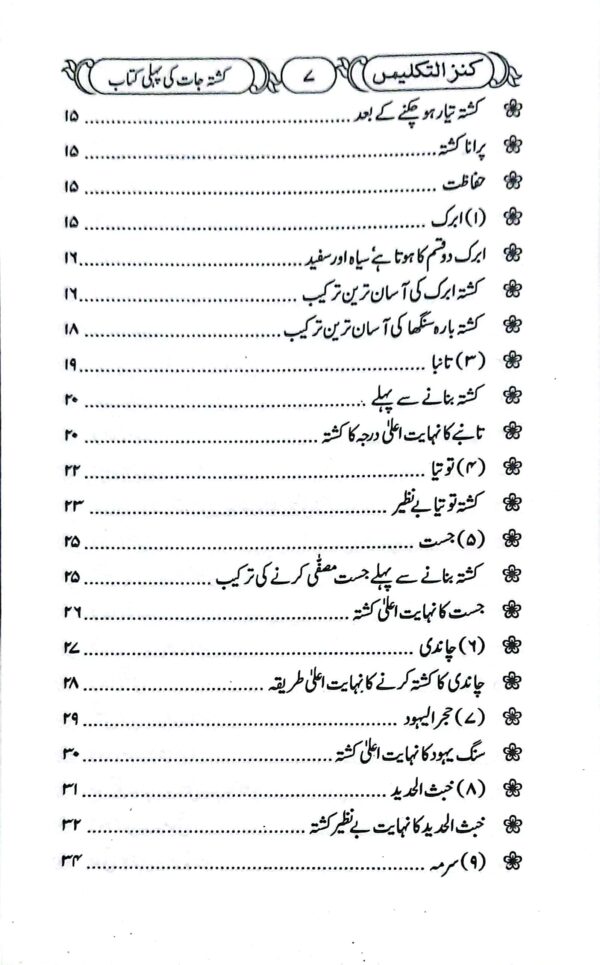 کنز التکلیس ۷ کشتہ جات کی پہلی کتاب
کشتہ تیار ہو چکنے کے بعد ۱۵
پرانا کشتہ ۱۵
حفاظت ۱۵
(۱) ابرک ۱۵
ابرک دو قسم کا ہوتا ہے سیاہ اور سفید ۱۶
کشتہ ابرک کی آسان ترین ترکیب ۱۶
کشتہ بارہ سنگھا کی آسان ترین ترکیب ۱۸
(۳) تانبا ۱۹
کشتہ بنانے سے پہلے ۲۰
تانبے کا نہایت اعلیٰ درجہ کا کشتہ ۲۰
(۴) توتیا ۲۲
کشتہ توتیا بے نظیر ۲۳
(۵) جست ۲۵
کشتہ بنانے سے پہلے جست مصفّٰی کرنے کی ترکیب ۲۵
جست کا نہایت اعلیٰ کشتہ ۲۶
(۶) چاندی ۲۷
چاندی کا کشتہ کرنے کا نہایت اعلیٰ طریقہ ۲۸
(۷) حجر الیہود ۲۹
سنگ یہود کا نہایت اعلیٰ کشتہ ۳۰
(۸) خبث الحدید ۳۱
خبث الحدید کا نہایت بے نظیر کشتہ ۳۲
(۹) سرمہ ۳۴